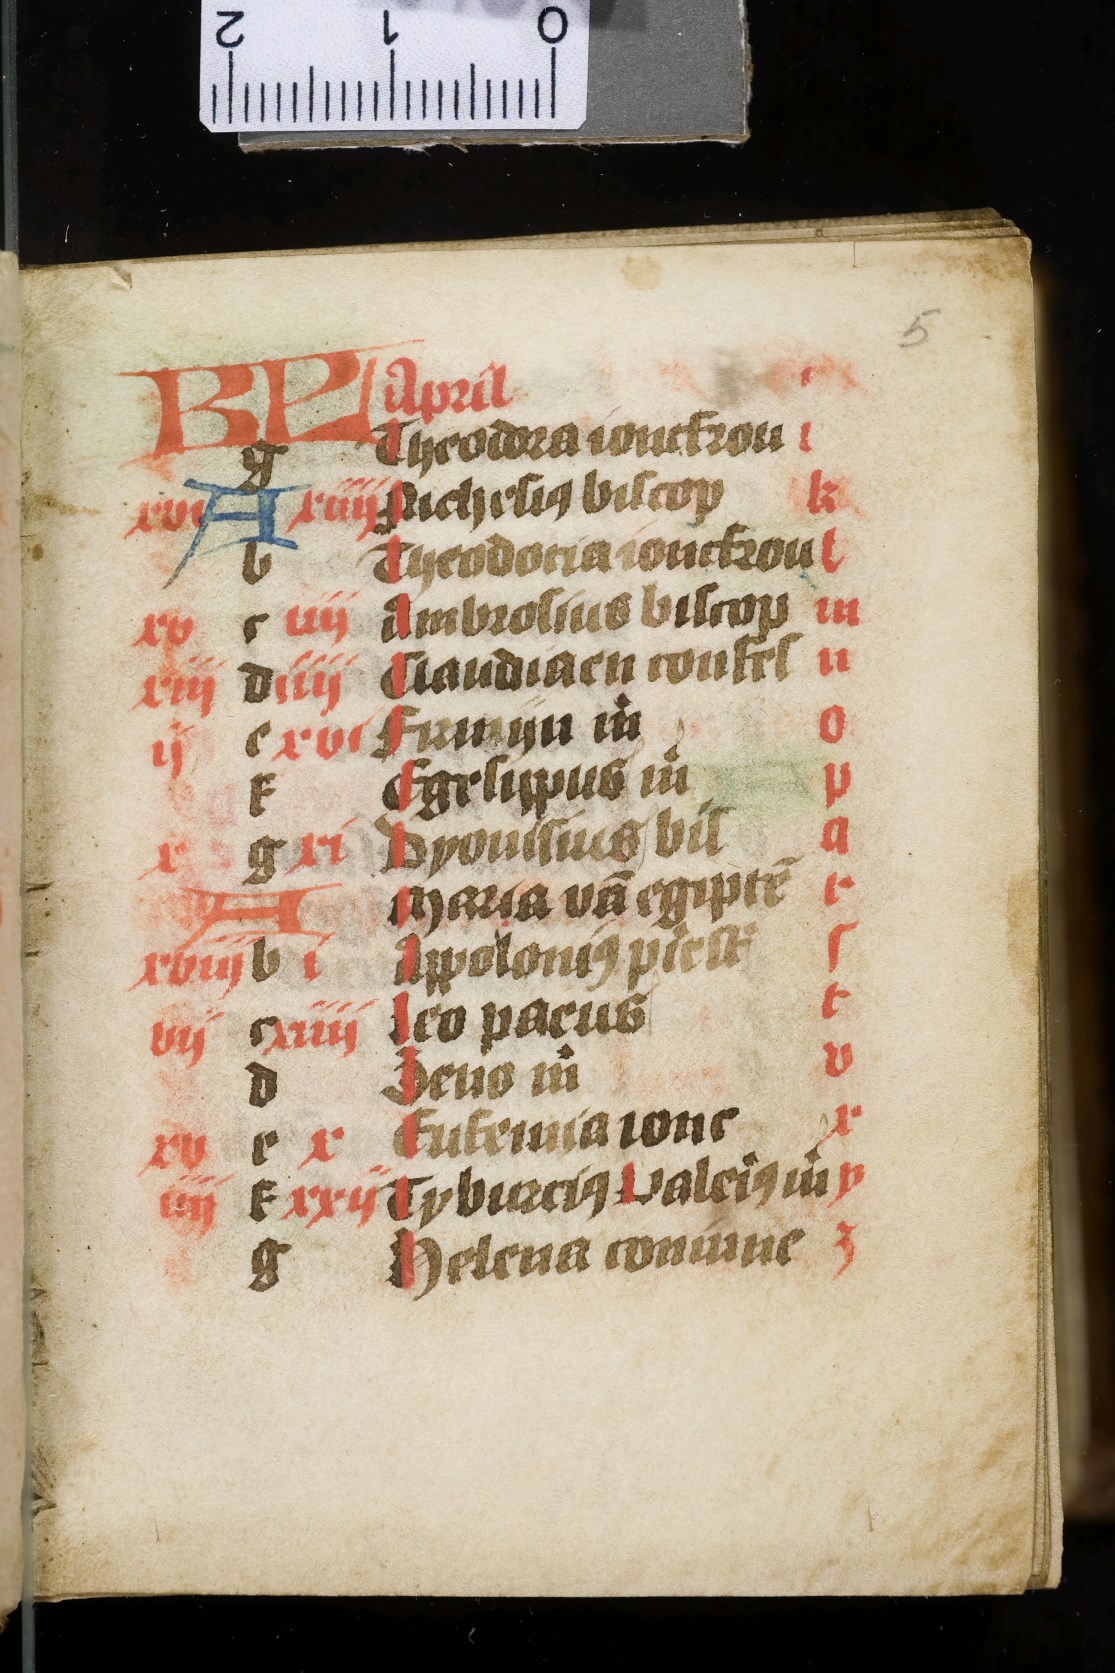 2 1 0
5
KL April
g Theodora ioncfrou i
xvi A xiiij Nichesius biscop k
b Theodocia ioncfrou l
xv c iiij Ambrosius biscop m
xiij d iiij Claudiaen confes n
ij e xvi Firmijn m̄ o
f Egesippus m̄ p
x g xi Dyonisius bis q
A Maria vā egiptē r
xviij b i Appolonius priest s
vij c xiiij Leo paeus t
d Zeno m̄ v
xv e x Eufemia ionc x
iiij f xxij Tyburcius Valerius m̄ y
g Helena coninne z